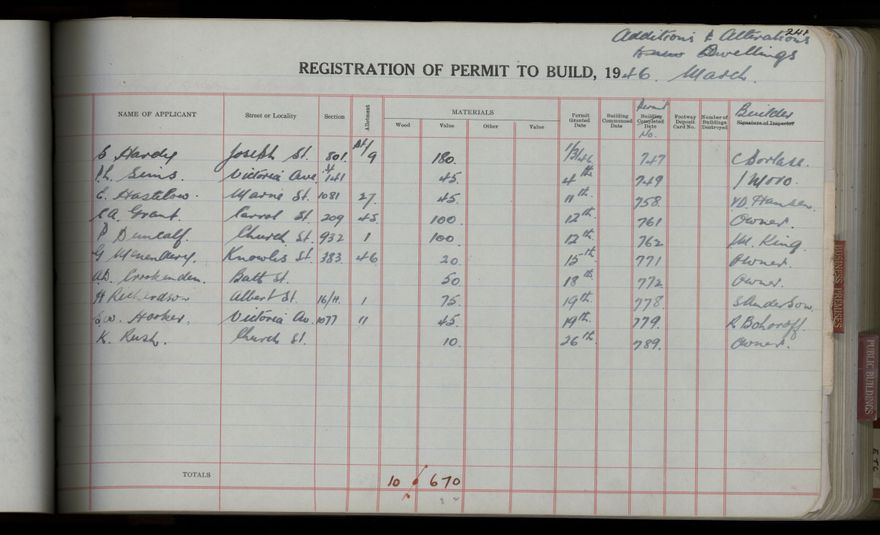 241
Additions & Alterations
to Dwellings
REGISTRATION OF PERMIT TO BUILD, 1946. March.
NAME OF APPLICANT Street or Locality Section Allotment MATERIALS Wood Value Other Value Permit Granted Date Building Commenced Date Permit Building Completed Date No. Footway Deposit Card No. Number of Buildings Destroyed Builder Signature of Inspector
Hardy Joseph St. 801. 9 180. 1/3/46 747
Sims. Victoria Ave. 141 45. 4th 749
Marie St. 1081 27 45. 11th 758 Hansen.
Grant. Carrol St. 209 45 100. 12th 761 Owner.
P Duncalf. Church St. 932 1 100. 12th 762 King.
Knowles St. 383. 46 20. 15th 771 Owner.
Crookenden. Batt St. 50. 18th 772 Owner.
H Richardson Albert St. 16/11. 1 75. 19th 778 Anderson.
Hooker. Victoria Av. 1077 11 45. 19th 779.
K. Rush. Church St. 10. 26th 789. Owner.
TOTALS 10 670
BUSINESS PREMISES
PUBLIC BUILDINGS